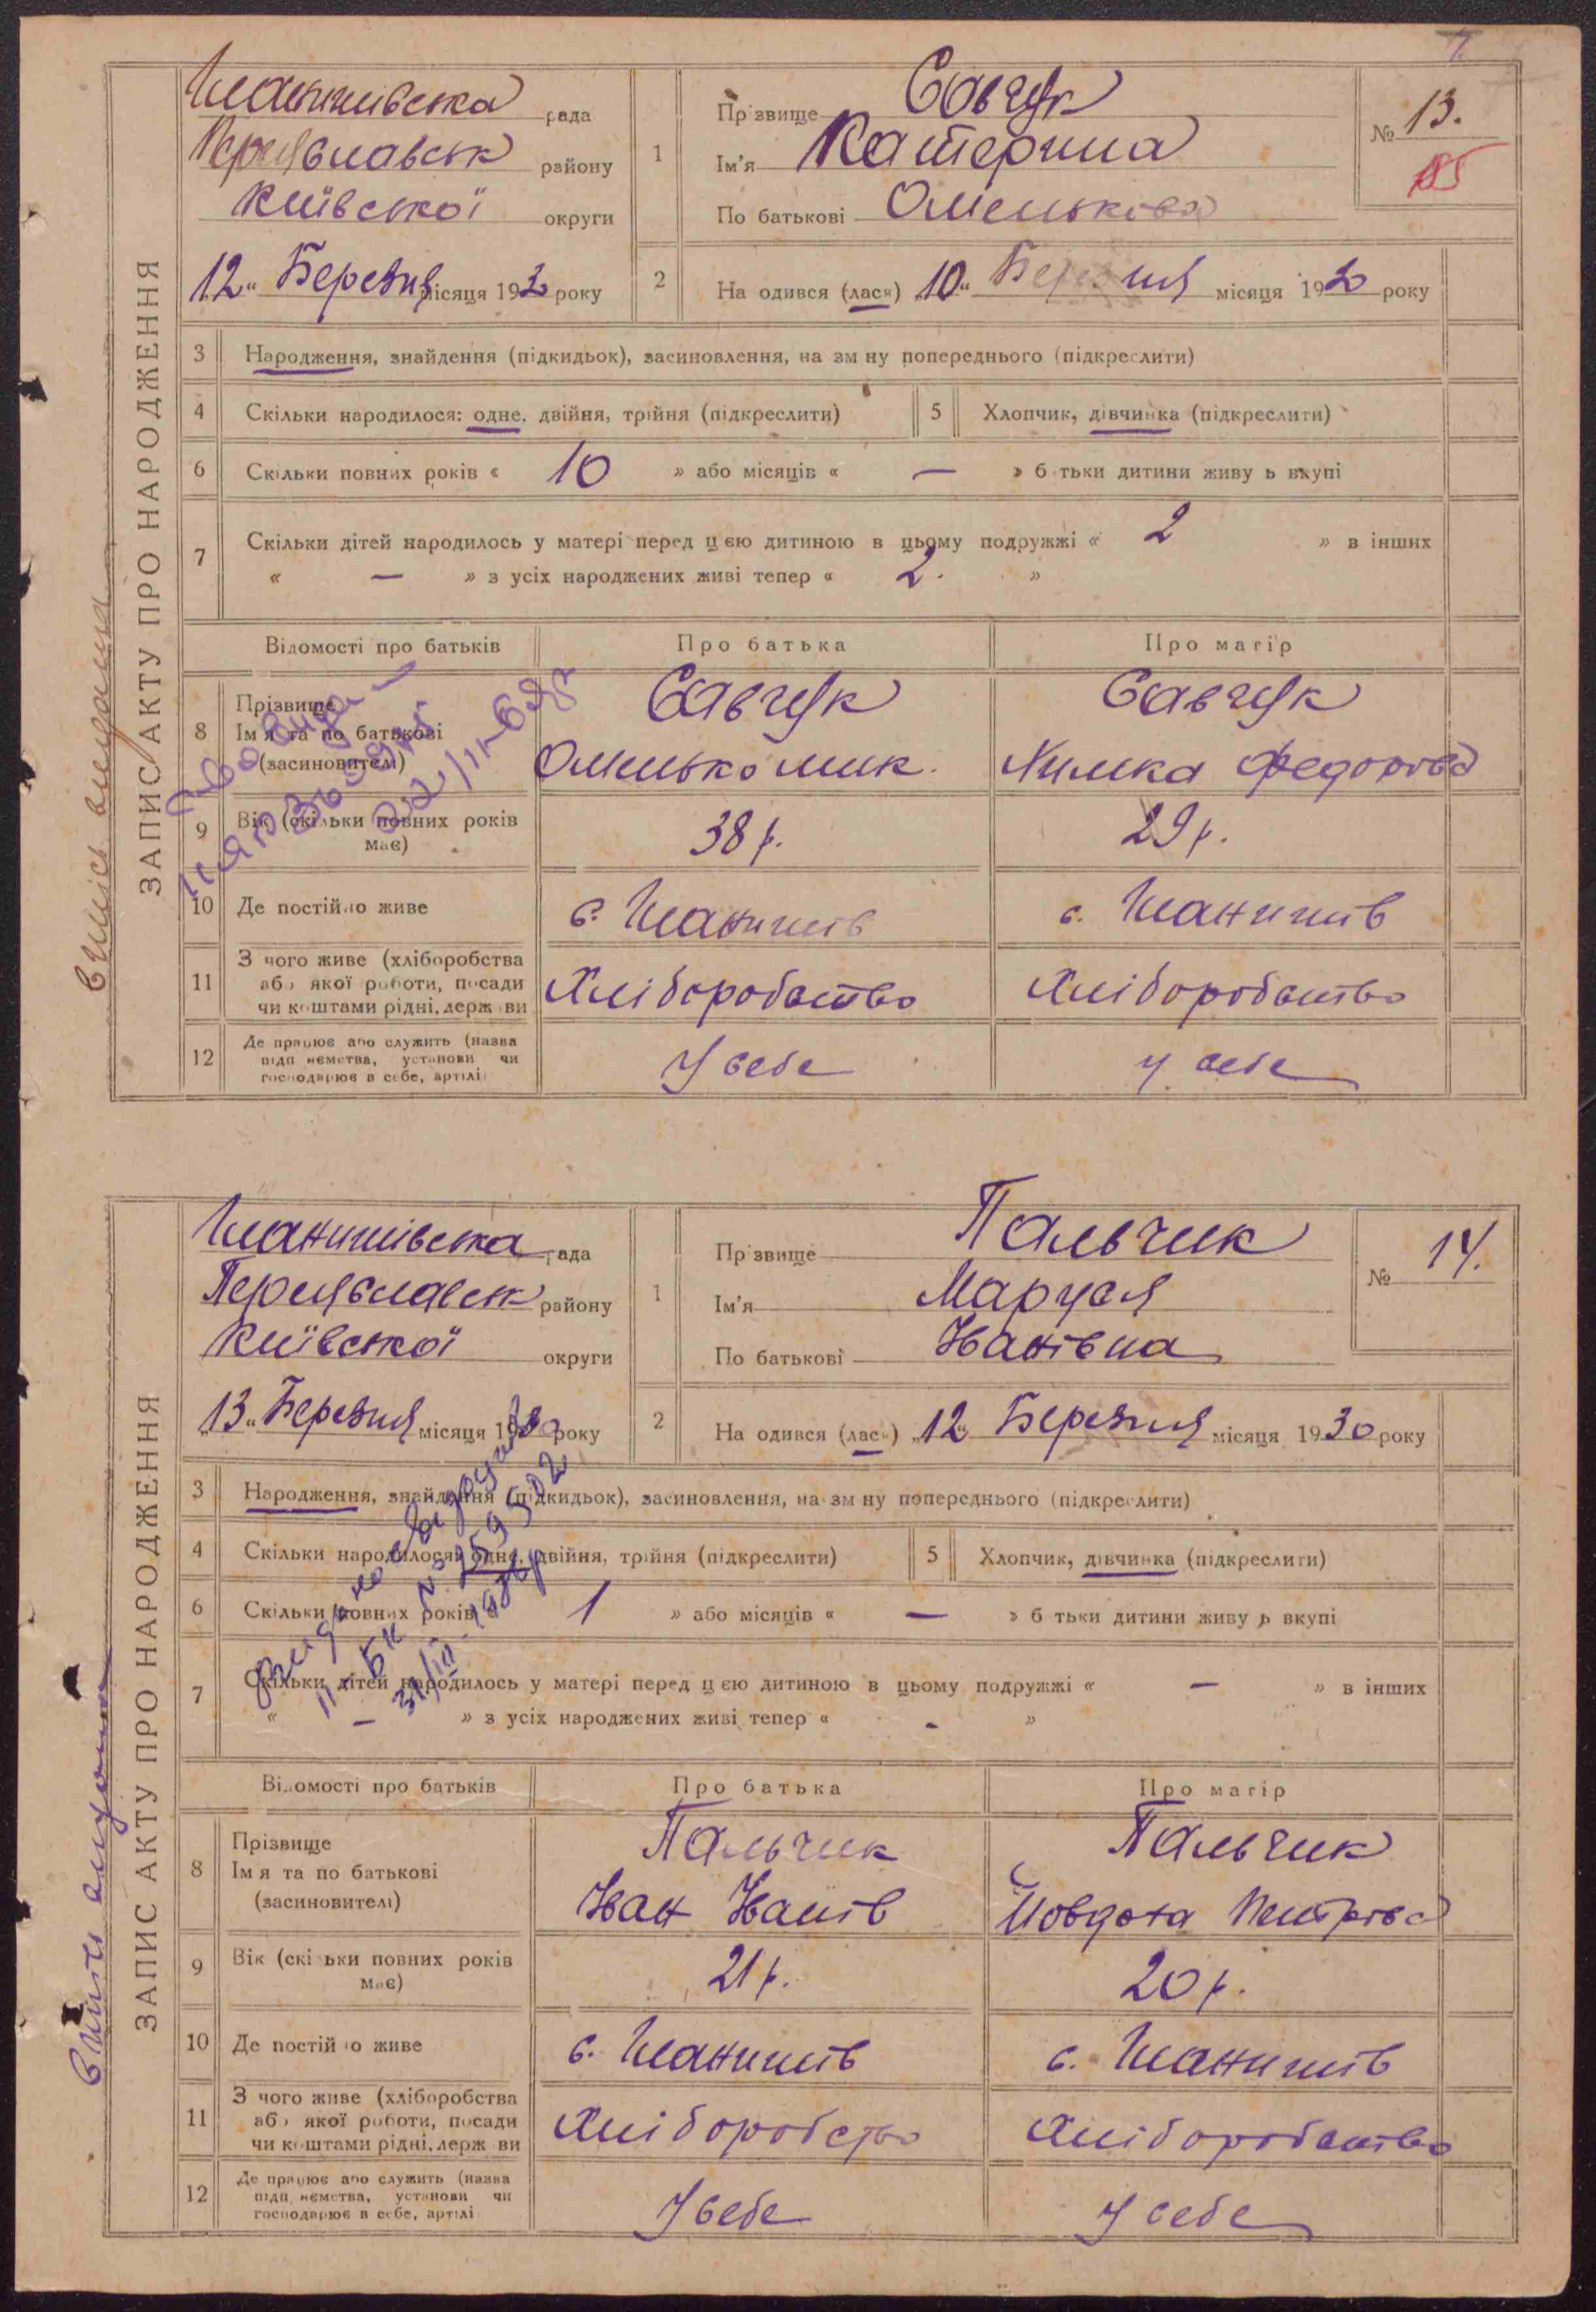 7.
ЗАПИС АКТУ ПРО НАРОДЖЕННЯ
Випись видана
Шанишівська рада
Переяславськ району
Київської округи
"12" Березня місяця 1930 року
1 Прізвище Савчук
Ім'я Катерина
По батькові Омелькова
№ 13.
185
2 Народився (лася) "10" Березня місяця 1930 року
3 Народження, знайдення (підкидьок), засиновлення, на зміну попереднього (підкреслити)
4 Скільки народилося: одне, двійня, трійня (підкреслити)
5 Хлопчик, дівчинка (підкреслити)
6 Скільки повних років « 10 » або місяців « — » батьки дитини живуть вкупі
7 Скільки дітей народилось у матері перед цією дитиною в цьому подружжі « 2 » в інших
« — » з усіх народжених живі тепер « 2. »
Відомості про батьків Про батька Про матір
8 Прізвище Ім'я та по батькові (засновителі)
Савчук Савчук
Омелько Мик. Химка Федорова
9 Вік (скільки повних років має) 38 р. 29 р.
10 Де постійно живе с. Шанишів с. Шанишів
11 З чого живе (хліборобства
або якої роботи, посади
чи коштами рідні, держави
Хліборобство Хліборобство
12 Де працює або служить (назва
підприємства, установи чи
господарює в себе, артілі)
У себе у себе
ЗАПИС АКТУ ПРО НАРОДЖЕННЯ
Шанишівська рада
Переяславськ району
Київської округи
"13" Березня місяця 1930 року
1 Прізвище Пальчик
Ім'я Маруся
По батькові Іванівна
№ 14.
2 Народився (лась) "12" Березня місяця 1930 року
3 Народження, знайдення (підкидьок), засиновлення, на зміну попереднього (підкреслити)
4 Скільки народилося: одне, двійня, трійня (підкреслити)
5 Хлопчик, дівчинка (підкреслити)
6 Скільки повних років « 1 » або місяців « — » батьки дитини живуть вкупі
7 Скільки дітей народилось у матері перед цією дитиною в цьому подружжі « — » в інших
« — » з усіх народжених живі тепер « - »
Відомості про батьків Про батька Про матір
8 Прізвище
Ім'я та по батькові
(засиновителі)
Пальчик Пальчик
Іван Іванів Йовдоха Петрова
9 Вік (скільки повних років має) 21 р. 20 р.
10 Де постійно живе с. Шанишів с. Шанишів
11 З чого живе (хліборобства
або якої роботи, посади
чи коштами рідні, держави
Хліборобство Хліборобство
12 Де працює або служить (назва
підприємства, установи чи
господарює в себе, артілі
У себе У себе